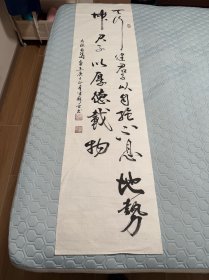 天行健君子以自强不息地勢
坤君子以厚德載物